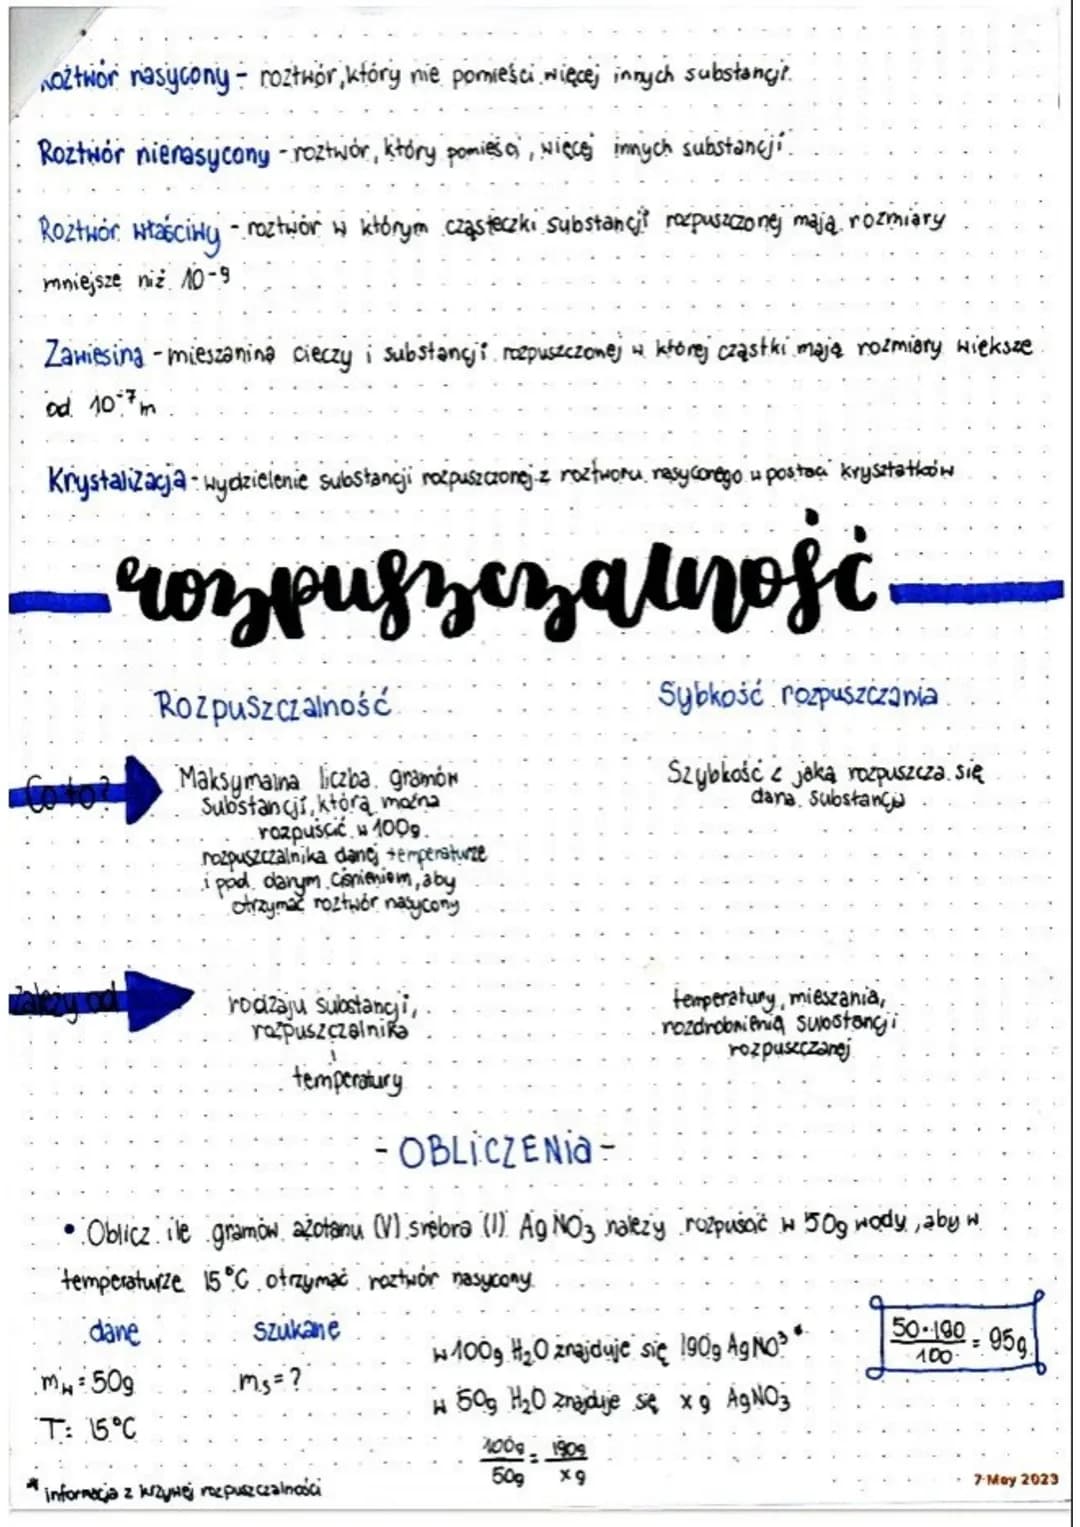 Roztwór nasycony - roztwór, który nie pomieści więcej innych substancji.
Roztwór nienasycony - roztwór, który pomieści, więcej innych substancji
Roztwór właściwy - roztwór w którym cząsteczki substancji rozpuszczonej mają rozmiary
mniejsze niż 10-9
Zawiesina - mieszanina cieczy i substancji rozpuszczonej w której cząstki mają rozmiary większe
od 10-7 m
Krystalizacja - wydzielenie substancji rozpuszczonej z roztworu nasyconego w postaci kryształków
rozpuszczalność
Rozpuszczalność
Sybkość rozpuszczania
Co to?
Maksymalna liczba gramów
substancji, którą można
rozpuścić w 100g
rozpuszczalnika danej temperaturze
i pod danym ciśnieniem, aby
otrzymać roztwór nasycony
Szybkość z jaką rozpuszcza się
dana substancja
Zależy od
rodzaju substancji,
rozpuszczalnika
i
temperatury
temperatury, mieszania,
rozdrobnienia substancji
rozpuszczanej
- OBLICZENIA -
• Oblicz ile gramów azotanu (V) srebra (I) AgNO3 należy rozpuścić w 50g wody, aby w
temperaturze 15°C otrzymać roztwór nasycony
dane
szukane
mw = 50g
ms = ?
T: 15°C
w 100g H2O znajduje się 190g AgNO3*
w 50g H2O znajduje się x g AgNO3
100g/50g = 190g/x g
50·190/100 = 95g
* informacja z krzywej rozpuszczalności
7 May 2023